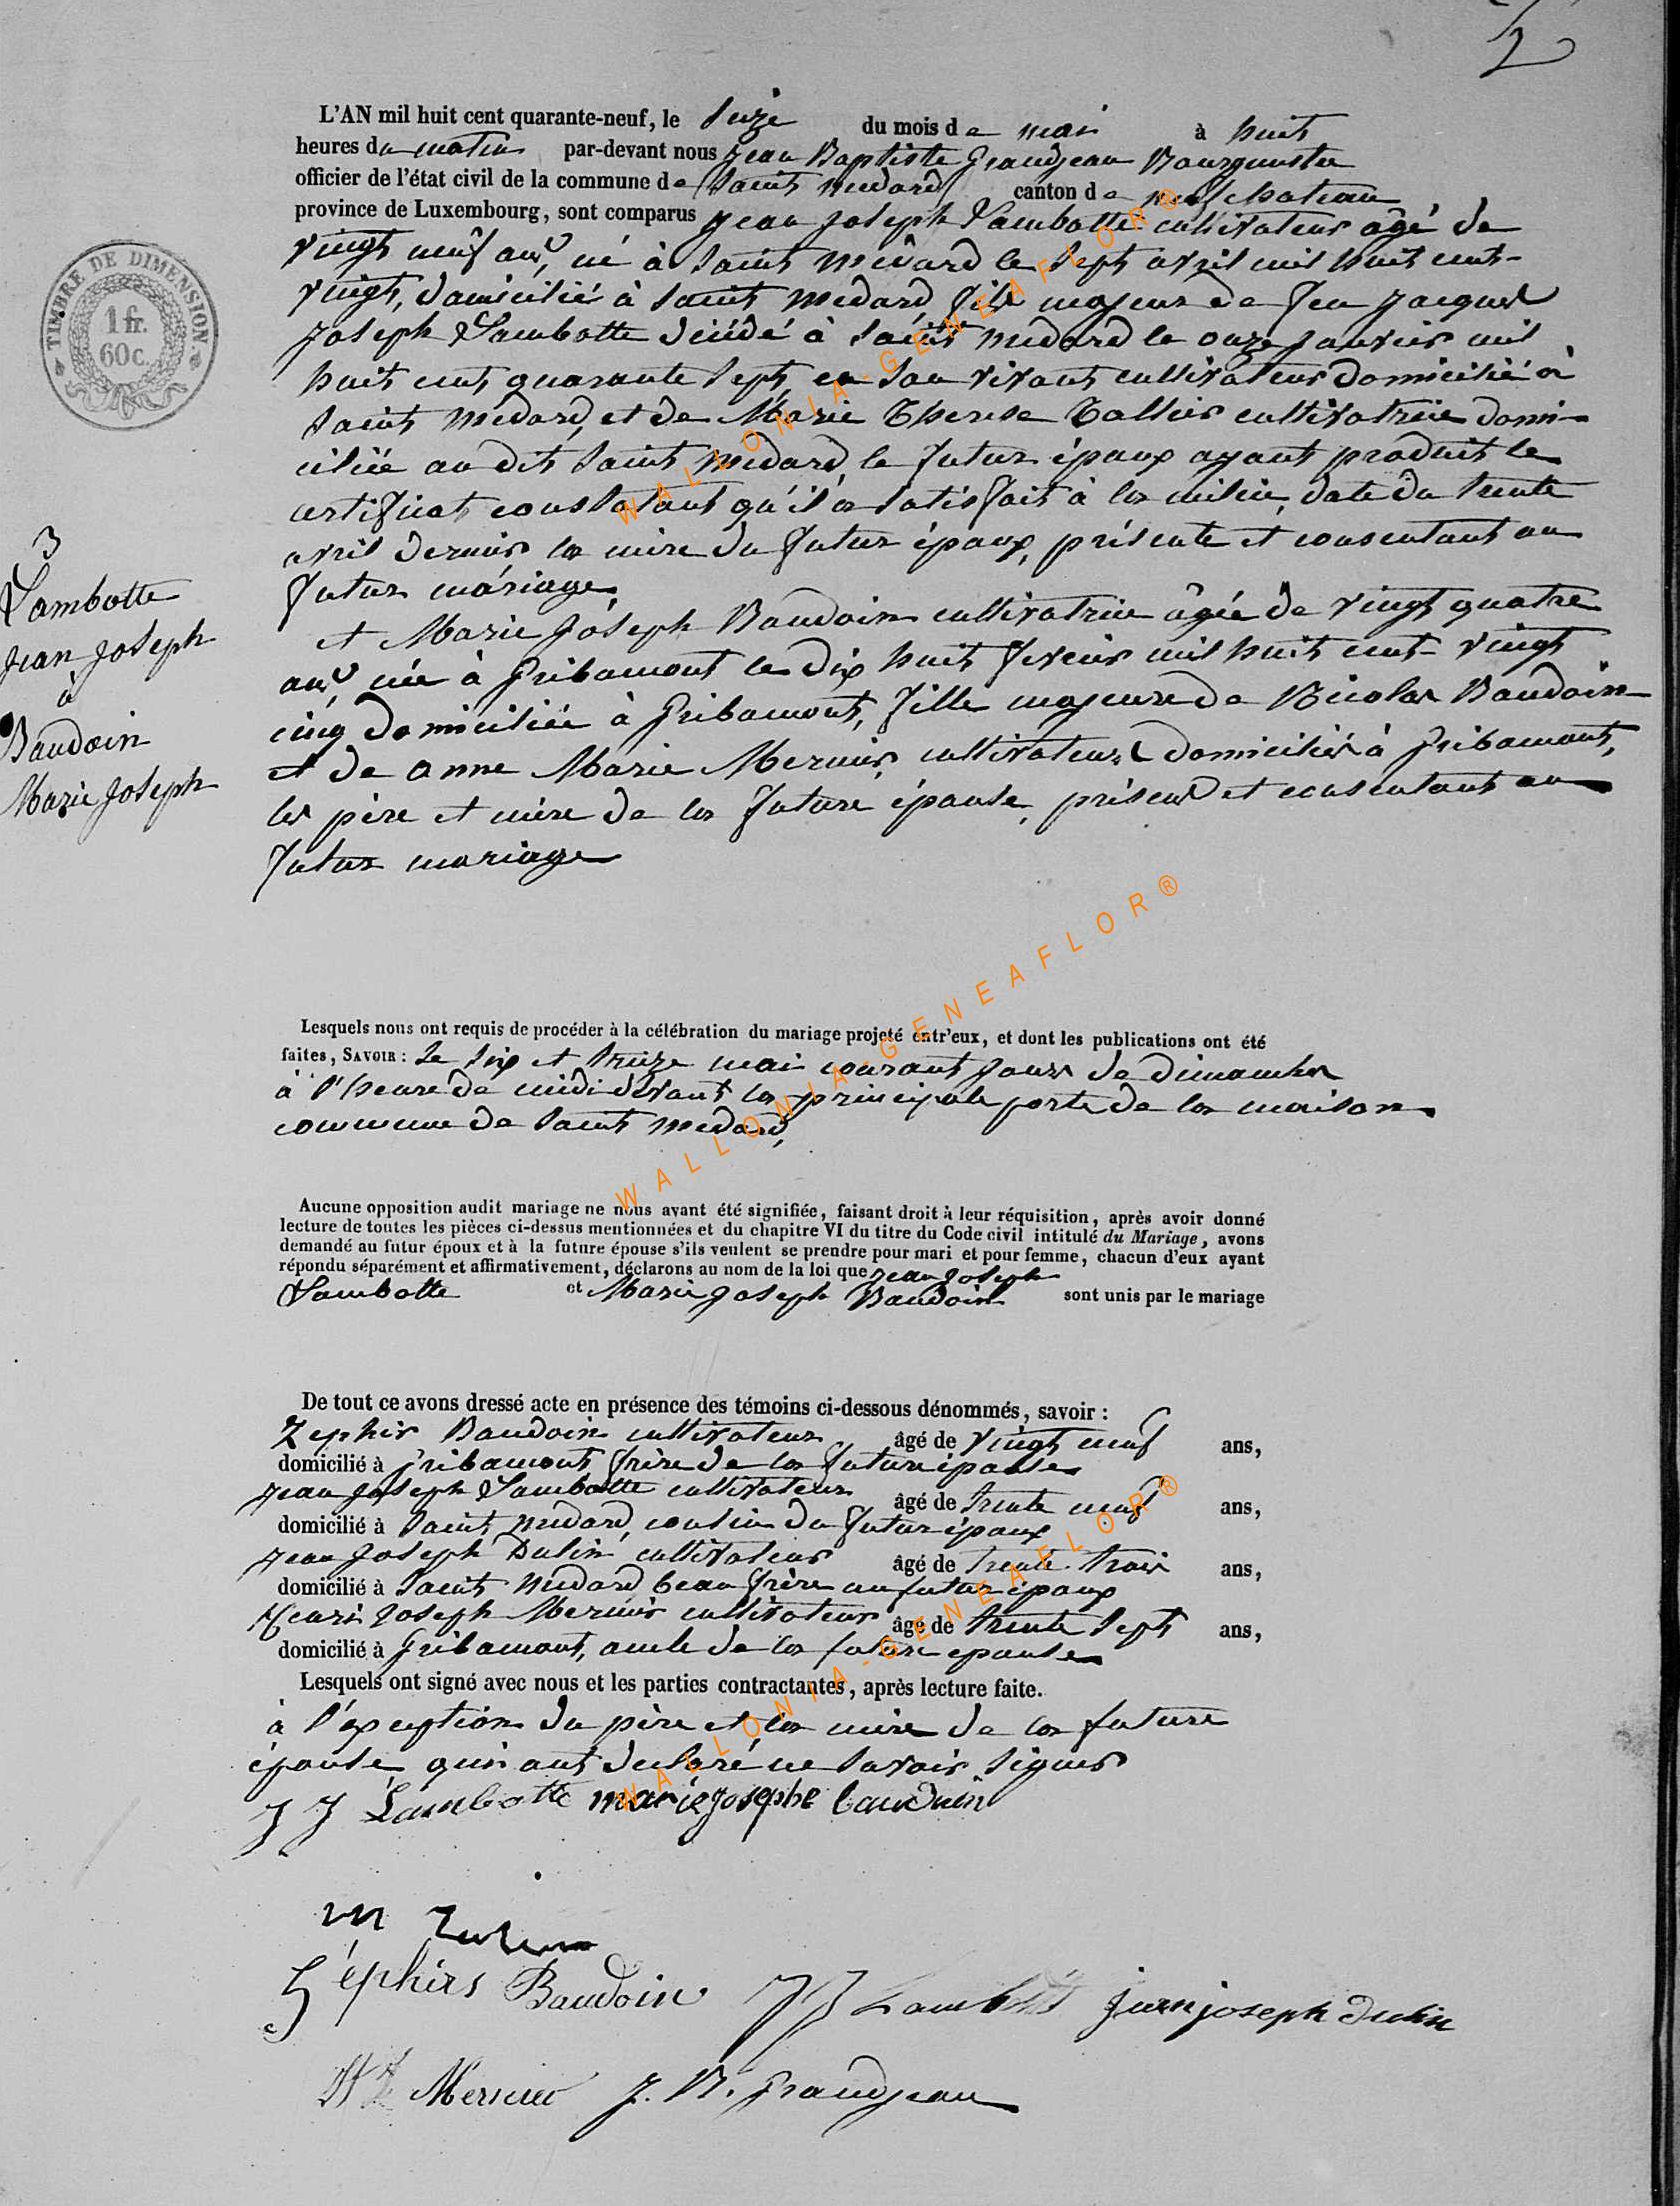 2
L'AN mil huit cent quarante-neuf, le Seize du mois de mai à huit
heures du matin par-devant nous Jean Baptiste Grandjean Bourgmestre
officier de l'état civil de la commune de Saint Medard canton de neufchateau
province de Luxembourg, sont comparus Jean Joseph Lambotte cultivateur âgé de
vingt neuf ans, né à Saint Médard le Sept avril mil huit cent-
vingt, domicilié à Saint Medard, fils majeur de feu Jacques
Joseph Lambotte décédé à Saint Medard le onze janvier mil
huit cent quarante Sept, en Son vivant cultivateur domicilié à
Saint Medard, et de Marie Therese Tallier cultivatrice domi-
ciliée au dit Saint Medard, le futur époux ayant produit le
certificat constatant qu'il a Satisfait à la milice, date du trente
avril dernier la mère du futur époux, présente et consentant au
futur mariage,
et Marie Joseph Baudoin cultivatrice âgée de vingt quatre
ans, née à Gribamont le dix huit fevrier mil huit cent- vingt
cinq domiciliée à Gribomont, fille majeure de Nicolas Baudoin
et de anne Marie Mernier, cultivateurs domiciliés à Gribamont,
les père et mère de la future épouse, présens et consentant au
futur mariage
TIMBRE DE DIMENSION
1 fr.
60 c.
3
Lambotte
Jean Joseph
à
Baudoin
Marie Joseph
Lesquels nous ont requis de procéder à la célébration du mariage projeté entr'eux, et dont les publications ont été
faites, SAVOIR : Le Six et treize mai courant jours de dimanches
à l'heure de midi devant la principale porte de la maison
commune de Saint Medard,
Aucune opposition audit mariage ne nous ayant été signifiée, faisant droit à leur réquisition, après avoir donné
lecture de toutes les pièces ci-dessus mentionnées et du chapitre VI du titre du Code civil intitulé du Mariage, avons
demandé au futur époux et à la future épouse s'ils veulent se prendre pour mari et pour femme, chacun d'eux ayant
répondu séparément et affirmativement, déclarons au nom de la loi que Jean Joseph
Lambotte et Marie Joseph Baudoin sont unis par le mariage
De tout ce avons dressé acte en présence des témoins ci-dessous dénommés, savoir :
Zephir Baudoin cultivateur âgé de vingt neuf ans,
domicilié à Gribamont frère de la future épouse
Jean Joseph Lambotte cultivateur âgé de trente neuf ans,
domicilié à Saint Medard, cousin du futur époux
Jean Joseph Dulin cultivateur âgé de trente trois ans,
domicilié à Saint Medard beau frère au futur époux
Henri Joseph Mernier cultivateur âgé de trente Sept ans,
domicilié à Gribamont, oncle de la future epouse
Lesquels ont signé avec nous et les parties contractantes, après lecture faite.
à l'exception du père et la mère de la future
épouse qui ont declaré ne Savoir Signer
J J Lambotte marie josephe bauduin
Zéphirs Baudoin J J Lambotte jean joseph dulin
Mernier J. B. Grandjean
WALLONIA-GENEAFLOR®
WALLONIA-GENEAFLOR®
WALLONIA-GENEAFLOR®